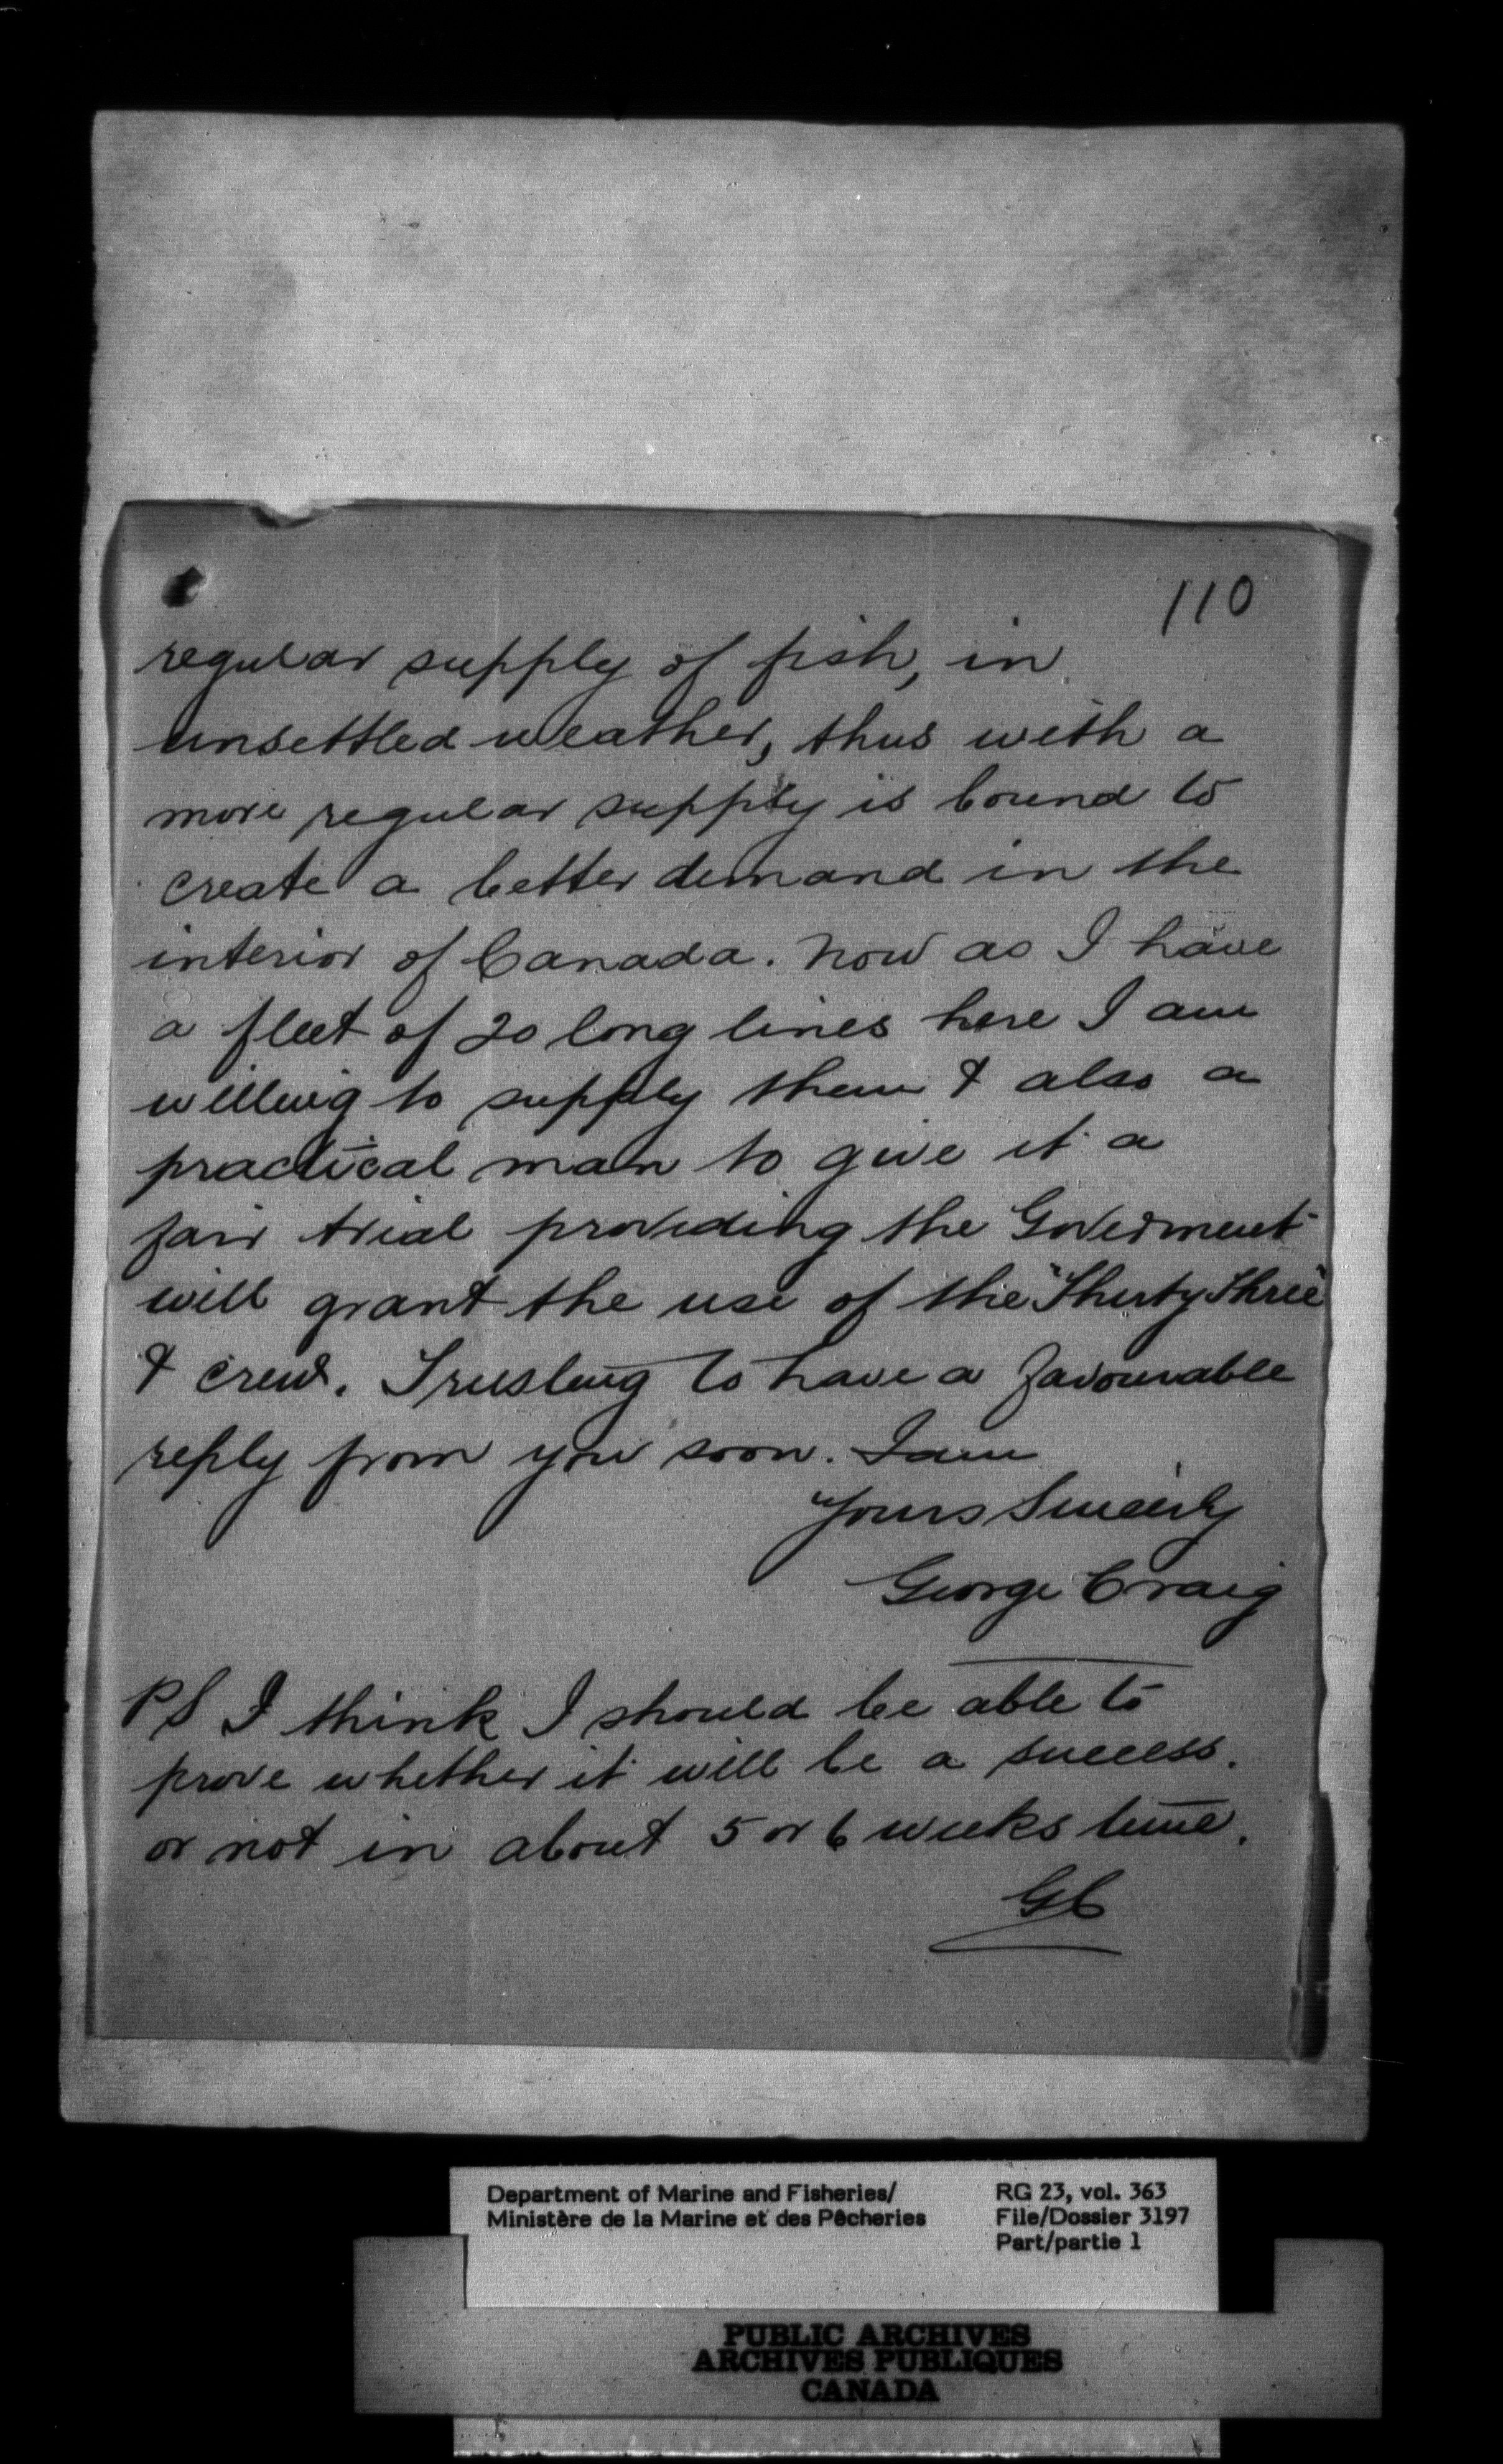 110
regular supply of fish, in
unsettled weather, thus with a
more regular supply is bound to
create a better demand in the
interior of Canada. Now as I have
a fleet of 20 long lines here I am
willing to supply them & also a
practical man to give it a
fair trial providing the Goverment
will grant the use of the "Thirty Three"
& crew. Trusting to have a favourable
reply from you soon. I am
Yours Sincerly
George Craig
PS I think I should be able to
prove whether it will be a success.
or not in about 5 or 6 weeks time.
GC
Department of Marine and Fisheries/
Ministère de la Marine et des Pêcheries
RG 23, vol. 363
File/Dossier 3197
Part/partie 1
PUBLIC ARCHIVES
ARCHIVES PUBLIQUES
CANADA